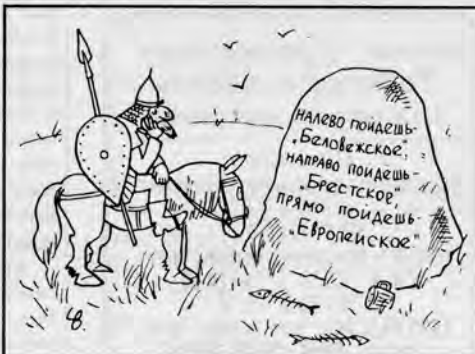 НАЛЕВО ПОЙДЕШЬ-
„Беловежское",
НАПРАВО ПОЙДЕШЬ-
„БРЕСТСКОЕ",
ПРЯМО ПОЙДЕШЬ-
„ЕВРОПЕЙСКОЕ"